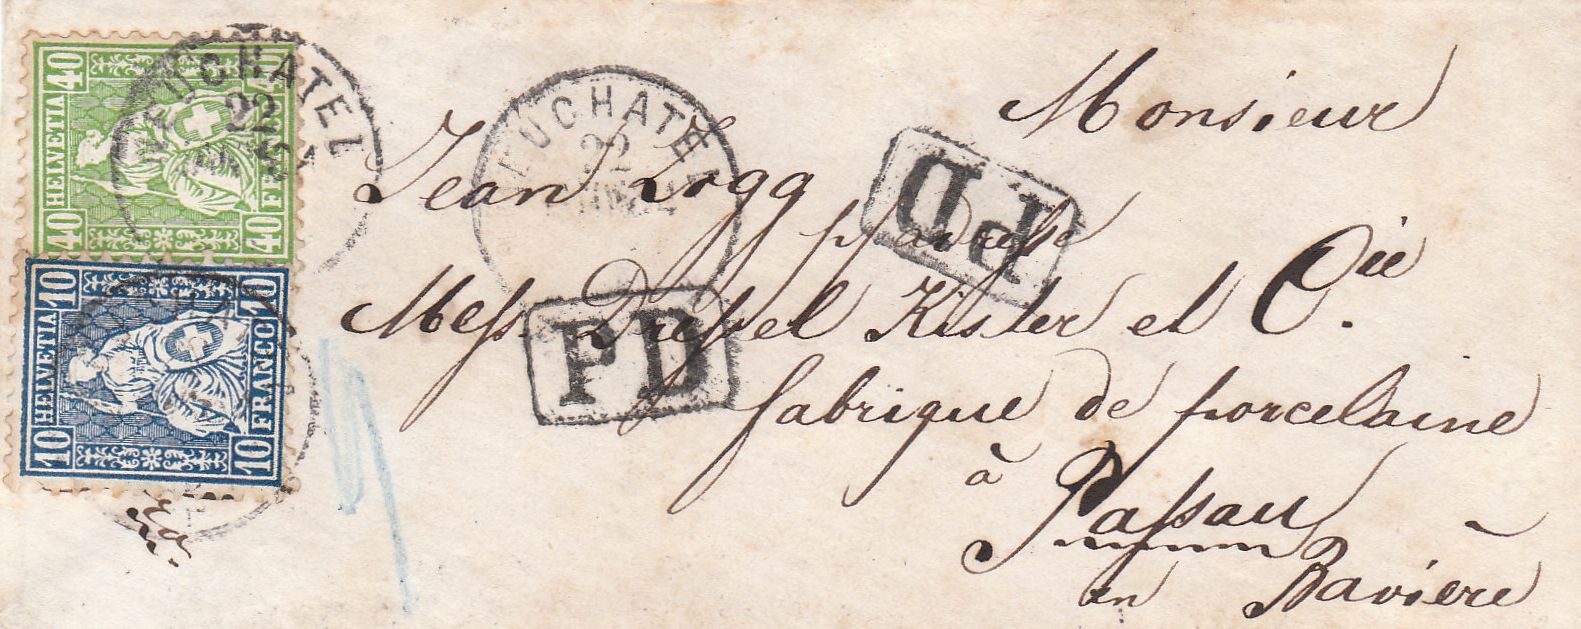 40 HELVETIA 40
40 FRANCO 40
NEUCHATEL
22
10 HELVETIA 10
10 FRANCO 10
NEUCHATEL
22
PD
PD
Monsieur
Jean Zogg
p/adresse
Mess. Dressel Kister et Cie.
fabrique de porcelaine
à Passau
en Bavière